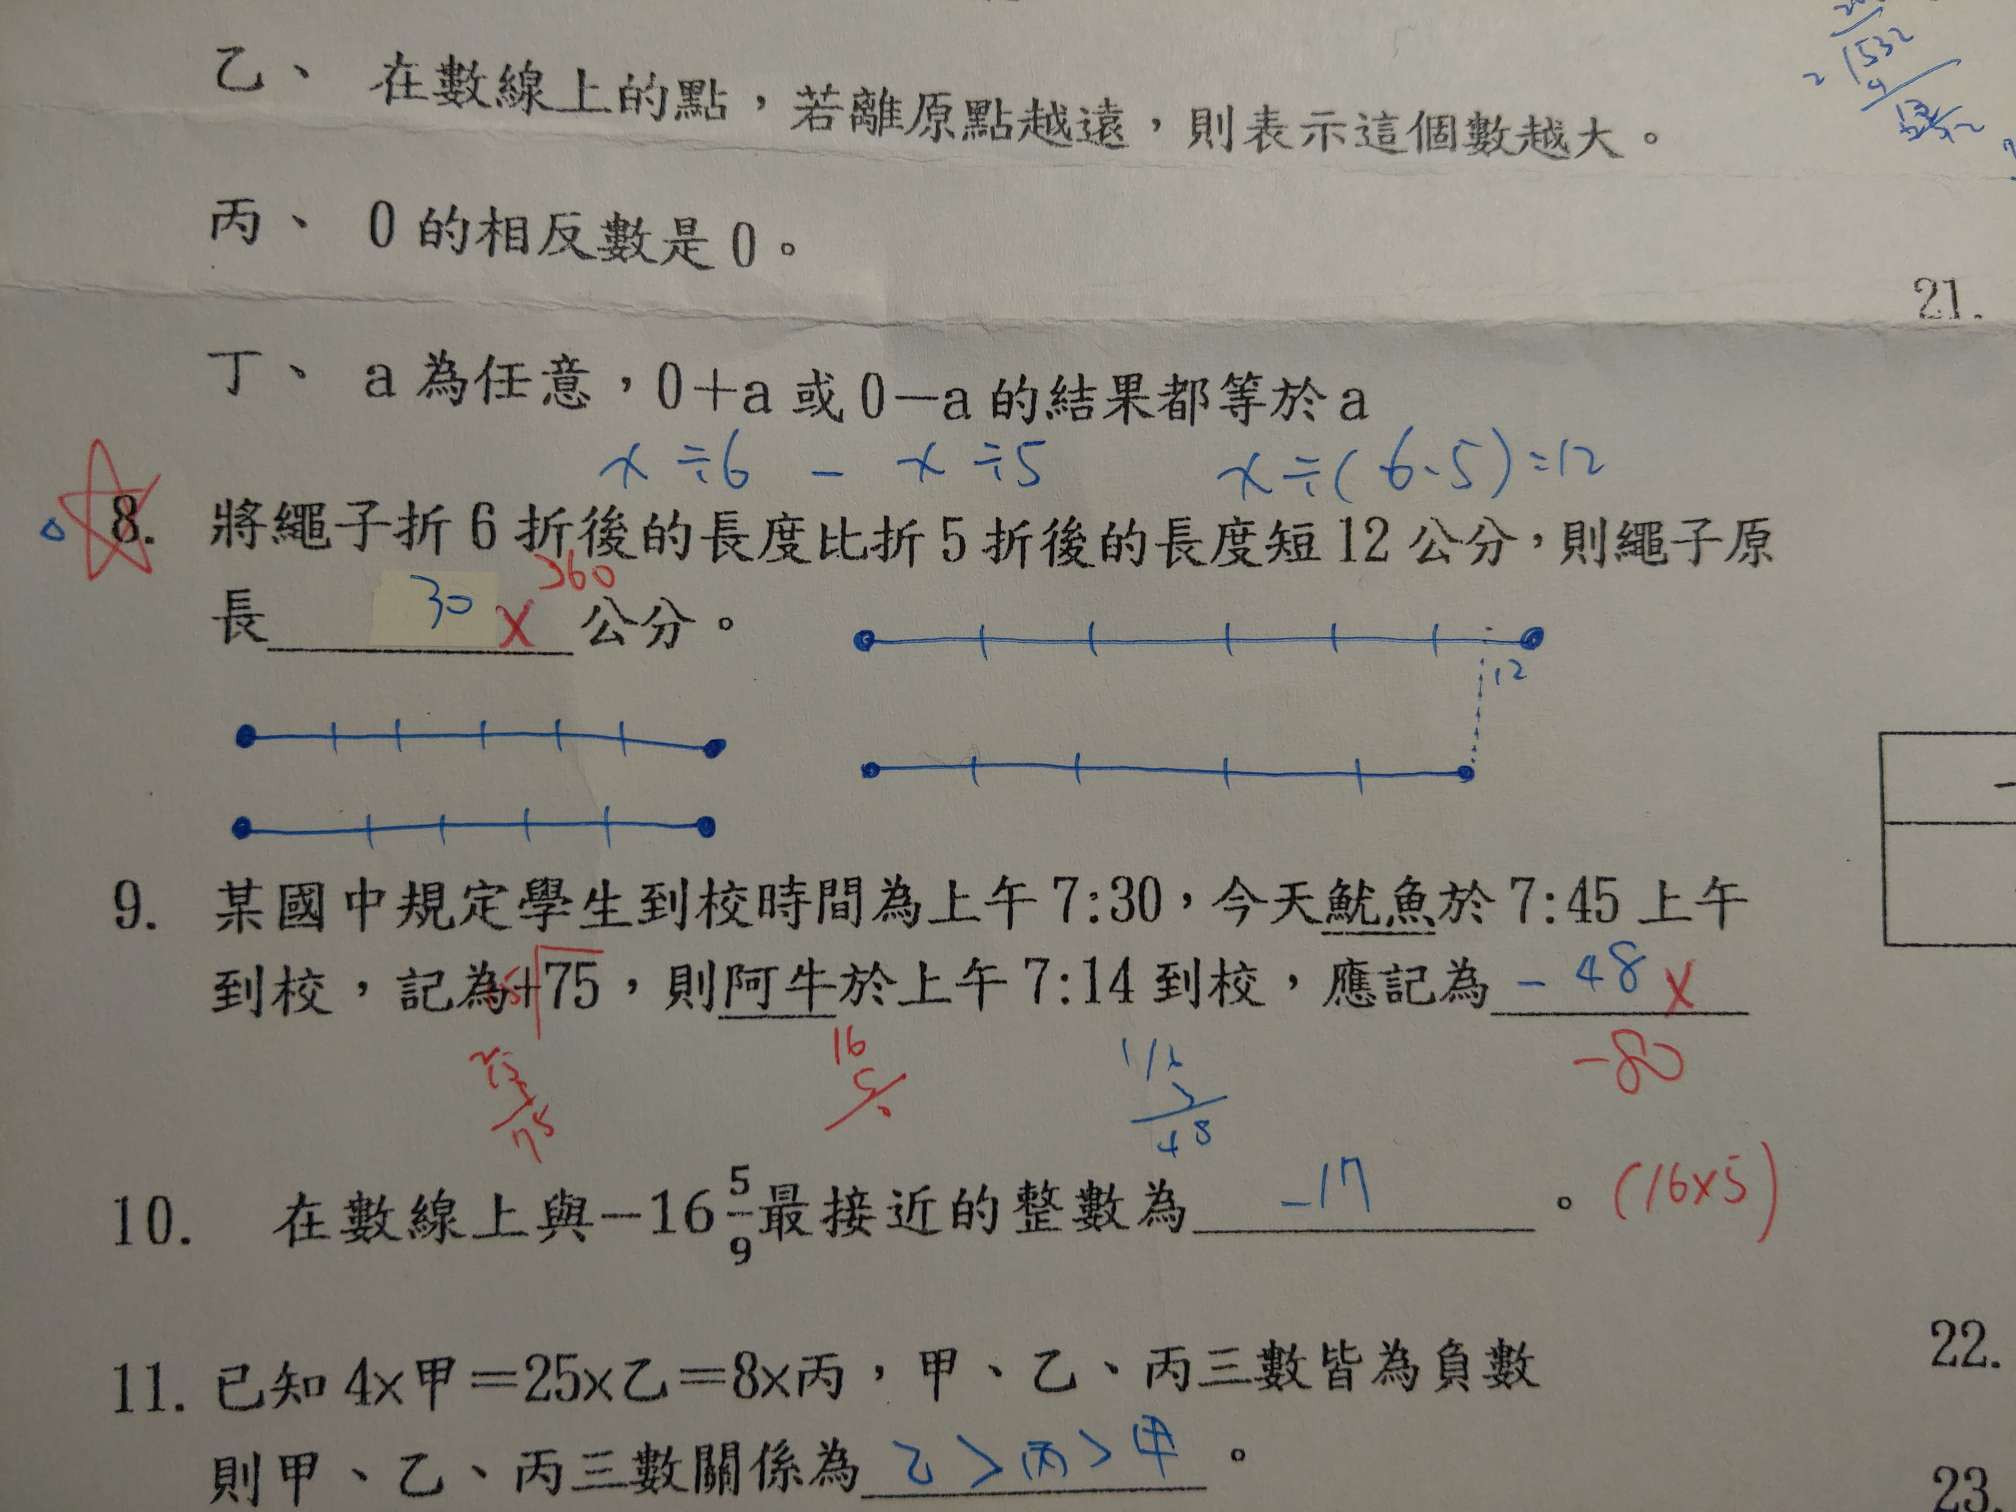 乙、 在數線上的點，若離原點越遠，則表示這個數越大。
丙、 0的相反數是0。
21.
丁、 a為任意，0+a或0-a的結果都等於a
x÷6 - x÷5 x÷(6-5)=12
8. 將繩子折6折後的長度比折5折後的長度短12公分，則繩子原
360
長 30 x 公分。
12
9. 某國中規定學生到校時間為上午7:30，今天魷魚於7:45上午
到校，記為+75，則阿牛於上午7:14到校，應記為 -48 x
-80
16
48
10. 在數線上與-16 5/9 最接近的整數為 -17 。 (16x5)
11. 已知4x甲=25x乙=8x丙，甲、乙、丙三數皆為負數
22.
則甲、乙、丙三數關係為 乙>丙>甲 。
23.